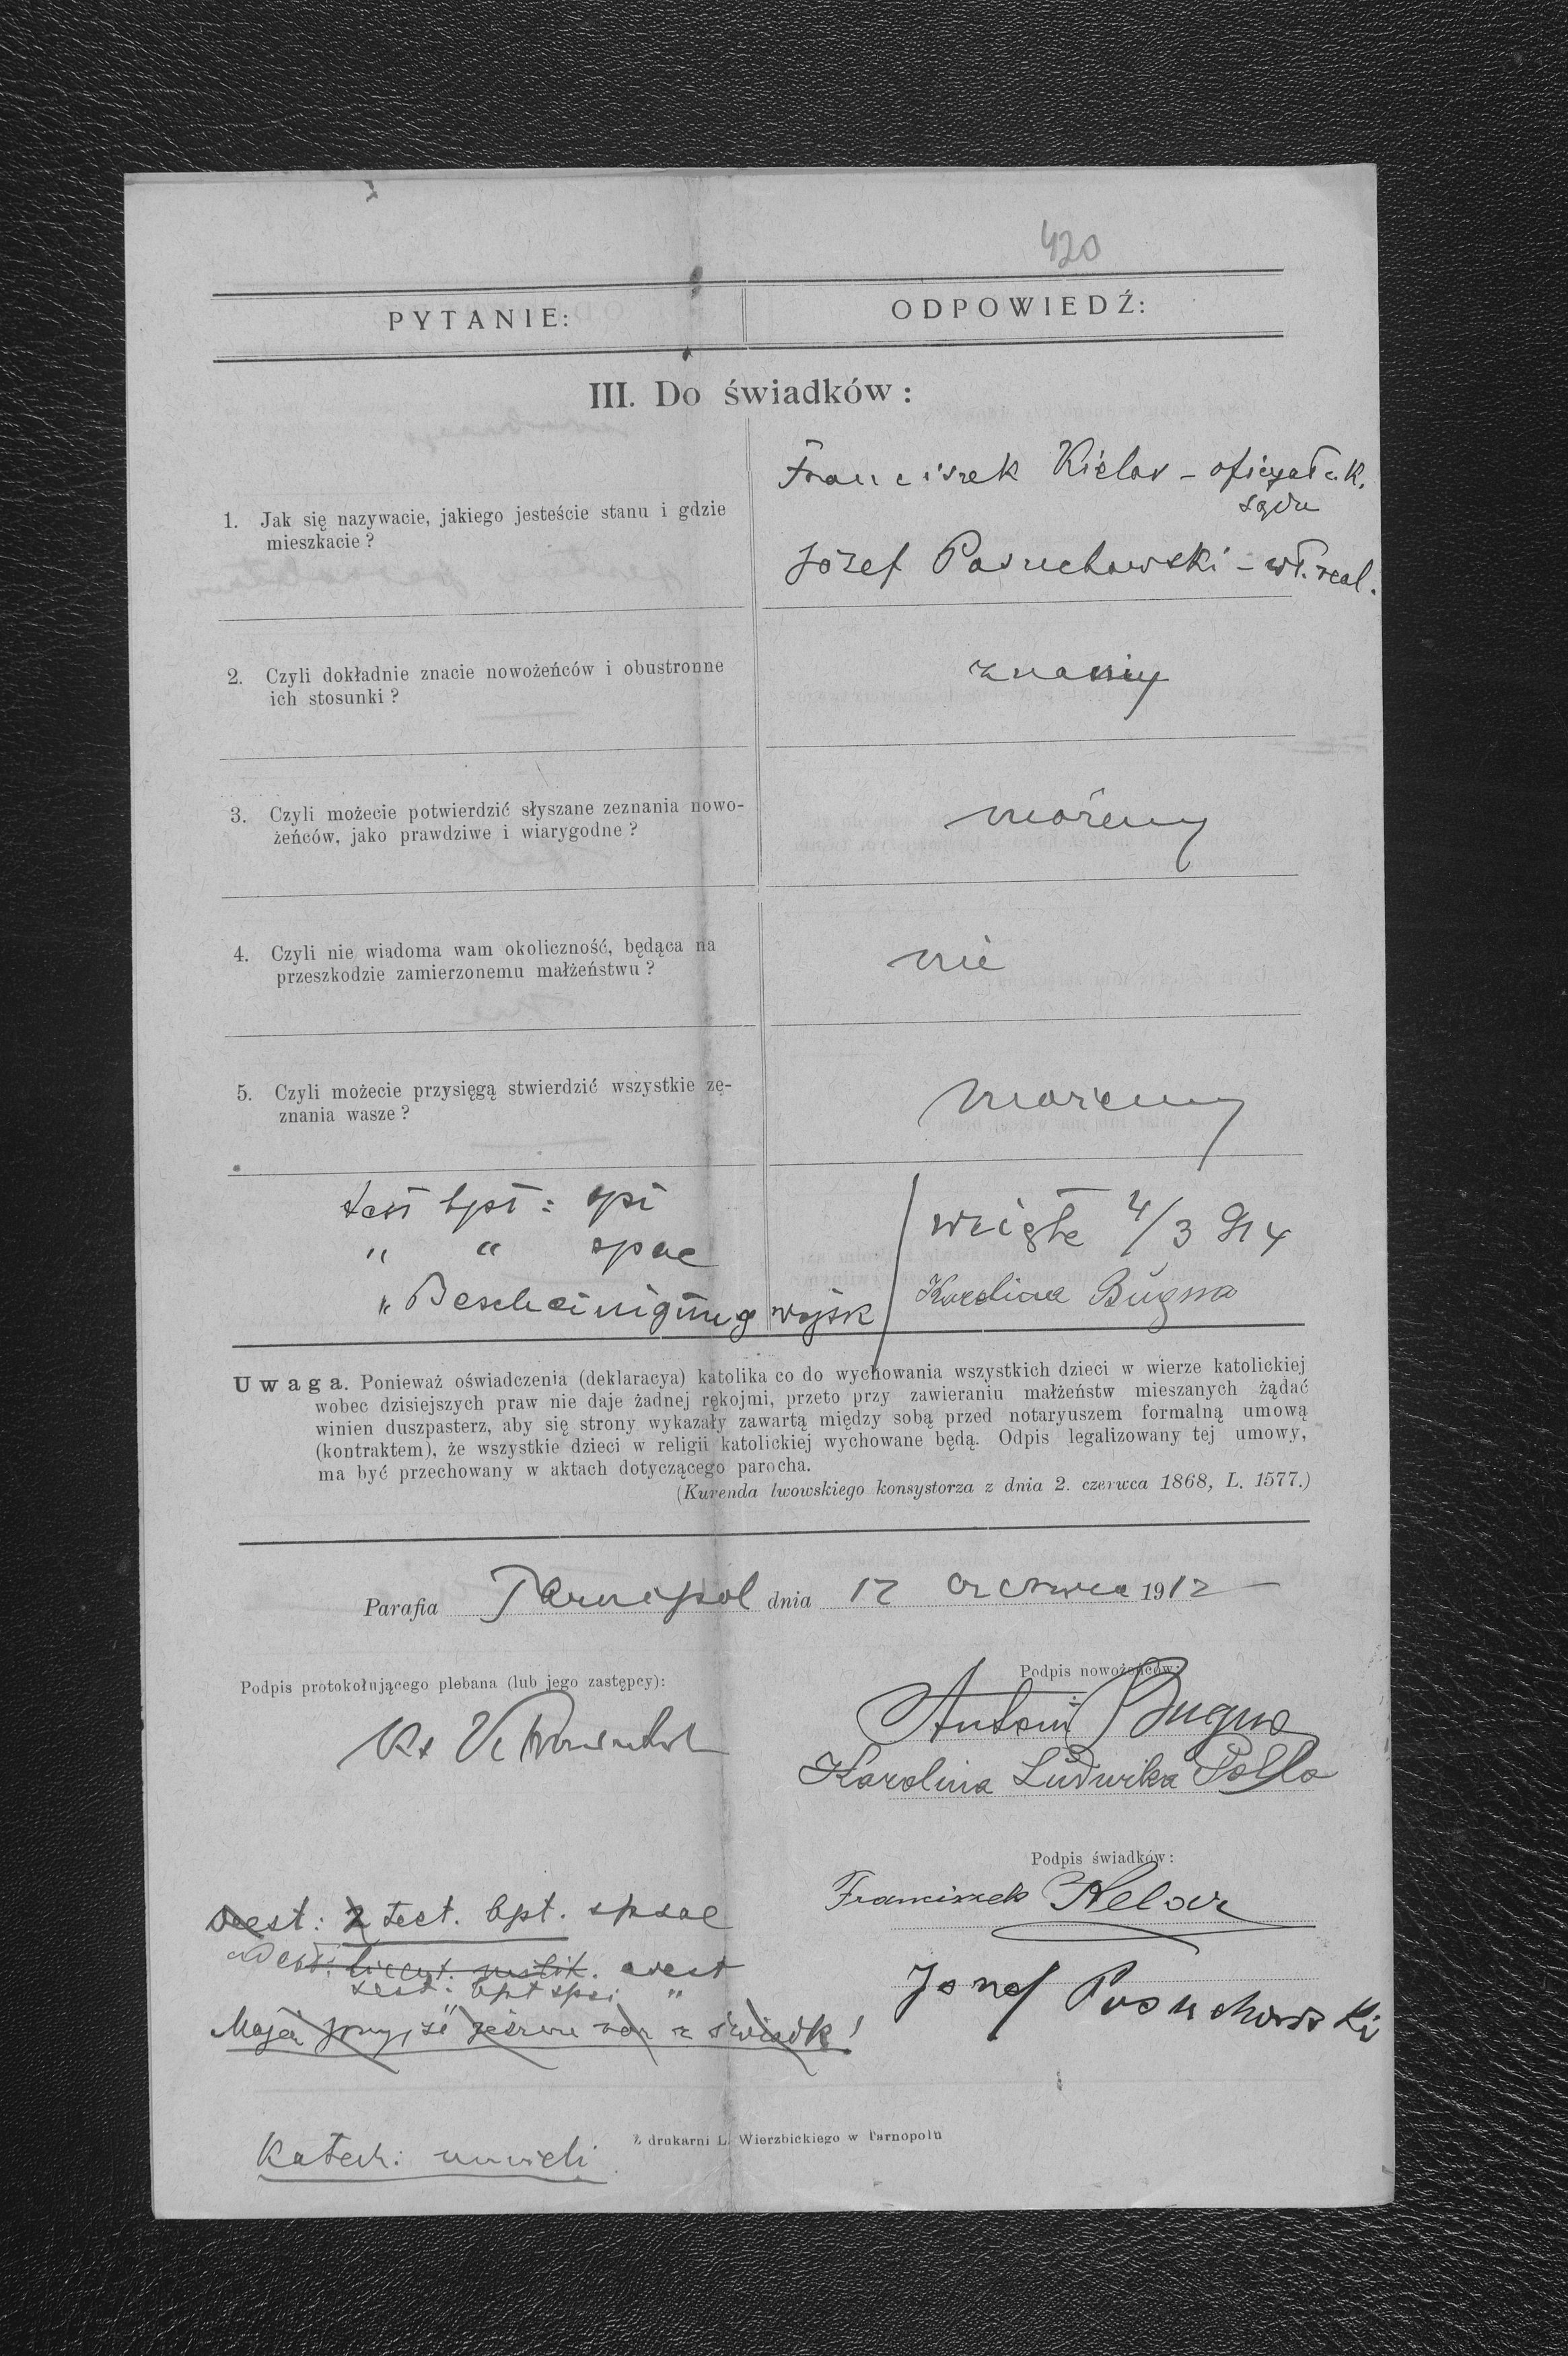 420
PYTANIE:
ODPOWIEDŹ:
III. Do świadków:
1. Jak się nazywacie, jakiego jesteście stanu i gdzie
mieszkacie?
Franciszek Kielar – oficyał c.k.
sądu
Józef Pasuchowski – wł. real.
2. Czyli dokładnie znacie nowożeńców i obustronne
ich stosunki?
znamy
3. Czyli możecie potwierdzić słyszane zeznania nowo-
żeńców, jako prawdziwe i wiarygodne?
możemy
4. Czyli nie wiadoma wam okoliczność, będąca na
przeszkodzie zamierzonemu małżeństwu?
nie
5. Czyli możecie przysięgą stwierdzić wszystkie zę-
znania wasze?
możemy
test bpt: spi
" " spae
" Bescheinigung wojsk
wzięłe 4/3 914
Karolina Bugno
Uwaga. Ponieważ oświadczenia (deklaracya) katolika co do wychowania wszystkich dzieci w wierze katolickiej
wobec dzisiejszych praw nie daje żadnej rękojmi, przeto przy zawieraniu małżeństw mieszanych żądać
winien duszpasterz, aby się strony wykazały zawartą między sobą przed notaryuszem formalną umową
(kontraktem), że wszystkie dzieci w religii katolickiej wychowane będą. Odpis legalizowany tej umowy,
ma być przechowany w aktach dotyczącego parocha.
(Kurenda lwowskiego konsystorza z dnia 2. czerwca 1868, L. 1577.)
Parafia Tarnopol dnia 12 czerwca 1912
Podpis protokołującego plebana (lub jego zastępcy):
Ks
Podpis nowożeńców:
Antoni Bugno
Karolina Ludwika
Podpis świadków:
Franciszek Kielar
Józef Pasuchowski
deest: 2 test. bpt. spsae
deest
test. bpt spsi "
Mają
Katech: umieli
Z drukarni L. Wierzbickiego w Tarnopolu